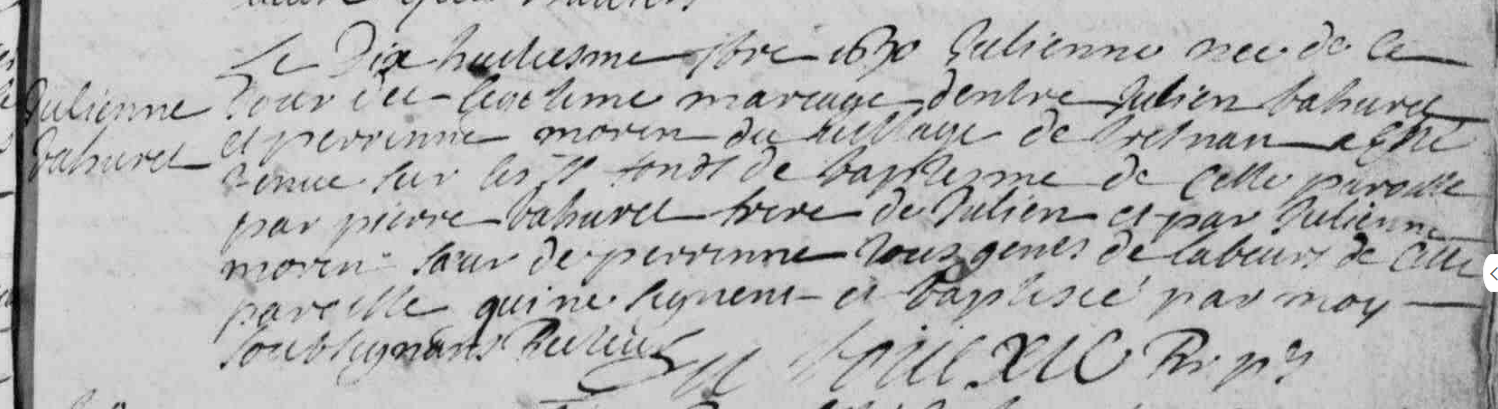 Le Dix huictiesme 1690 Julienne nee de ce
Julienne
bahuret
Jour du legitime mariage dentre Julien bahuret
et perrinne morin du village de a esté
tenue sur les Sts fonds de baptesme de cette paroisse
par pierre bahuret frere de Julien et par Julienne
morin sœur de perrinne tous gents de labeurs de cette
paroisse qui ne signent et baptisée par moy
soubsignant Recteur